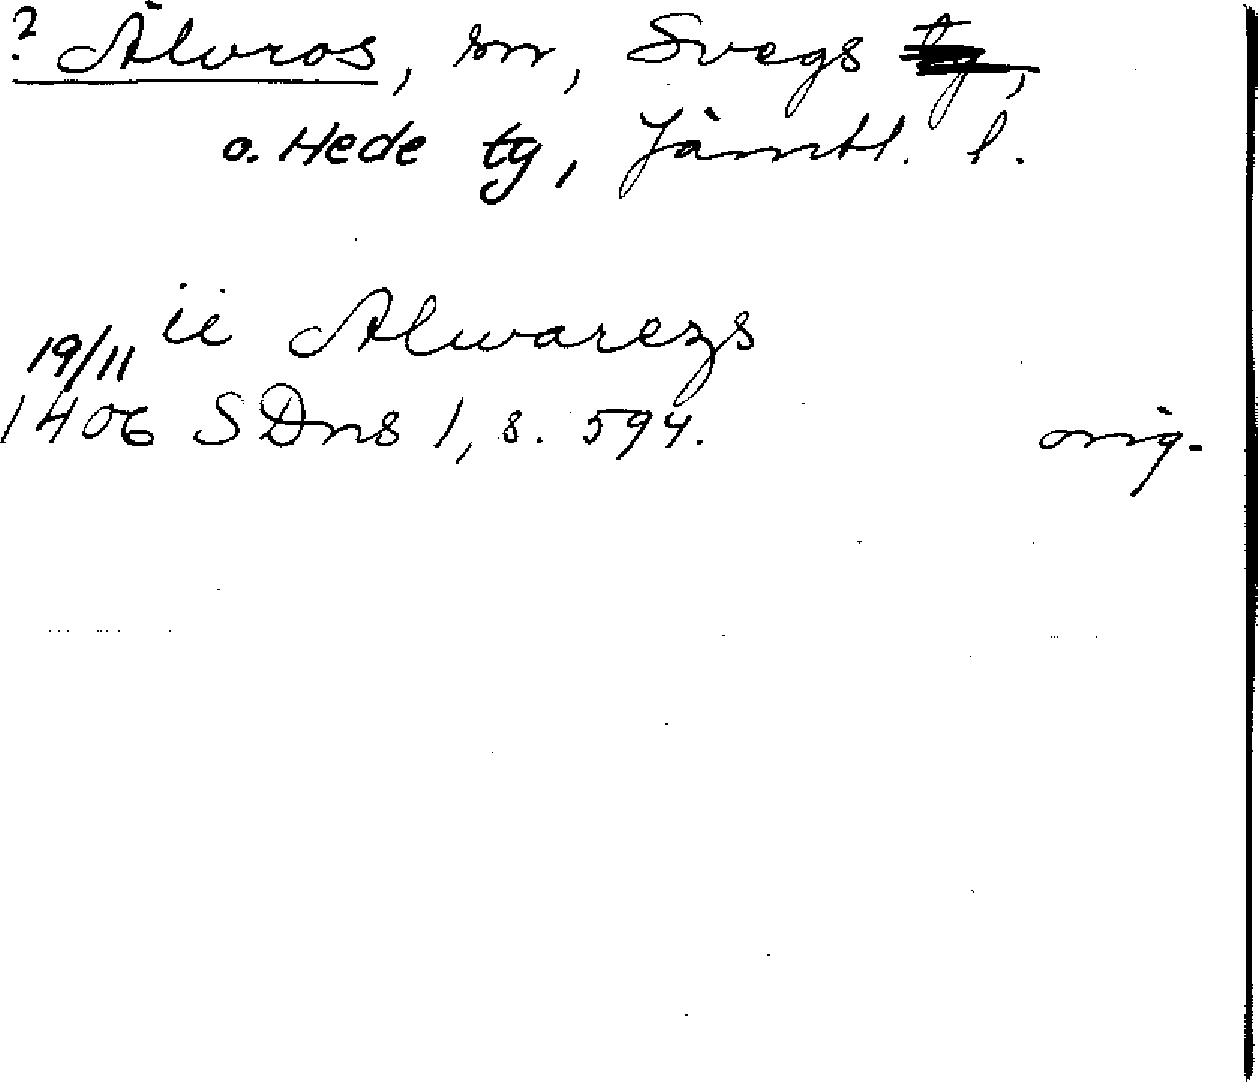 ? Älvros, sn, Svegs tg,
o. Hede tg, Jämtl. l.
ii Alwarezs
19/11
1406 SDns 1, s. 594. orig.